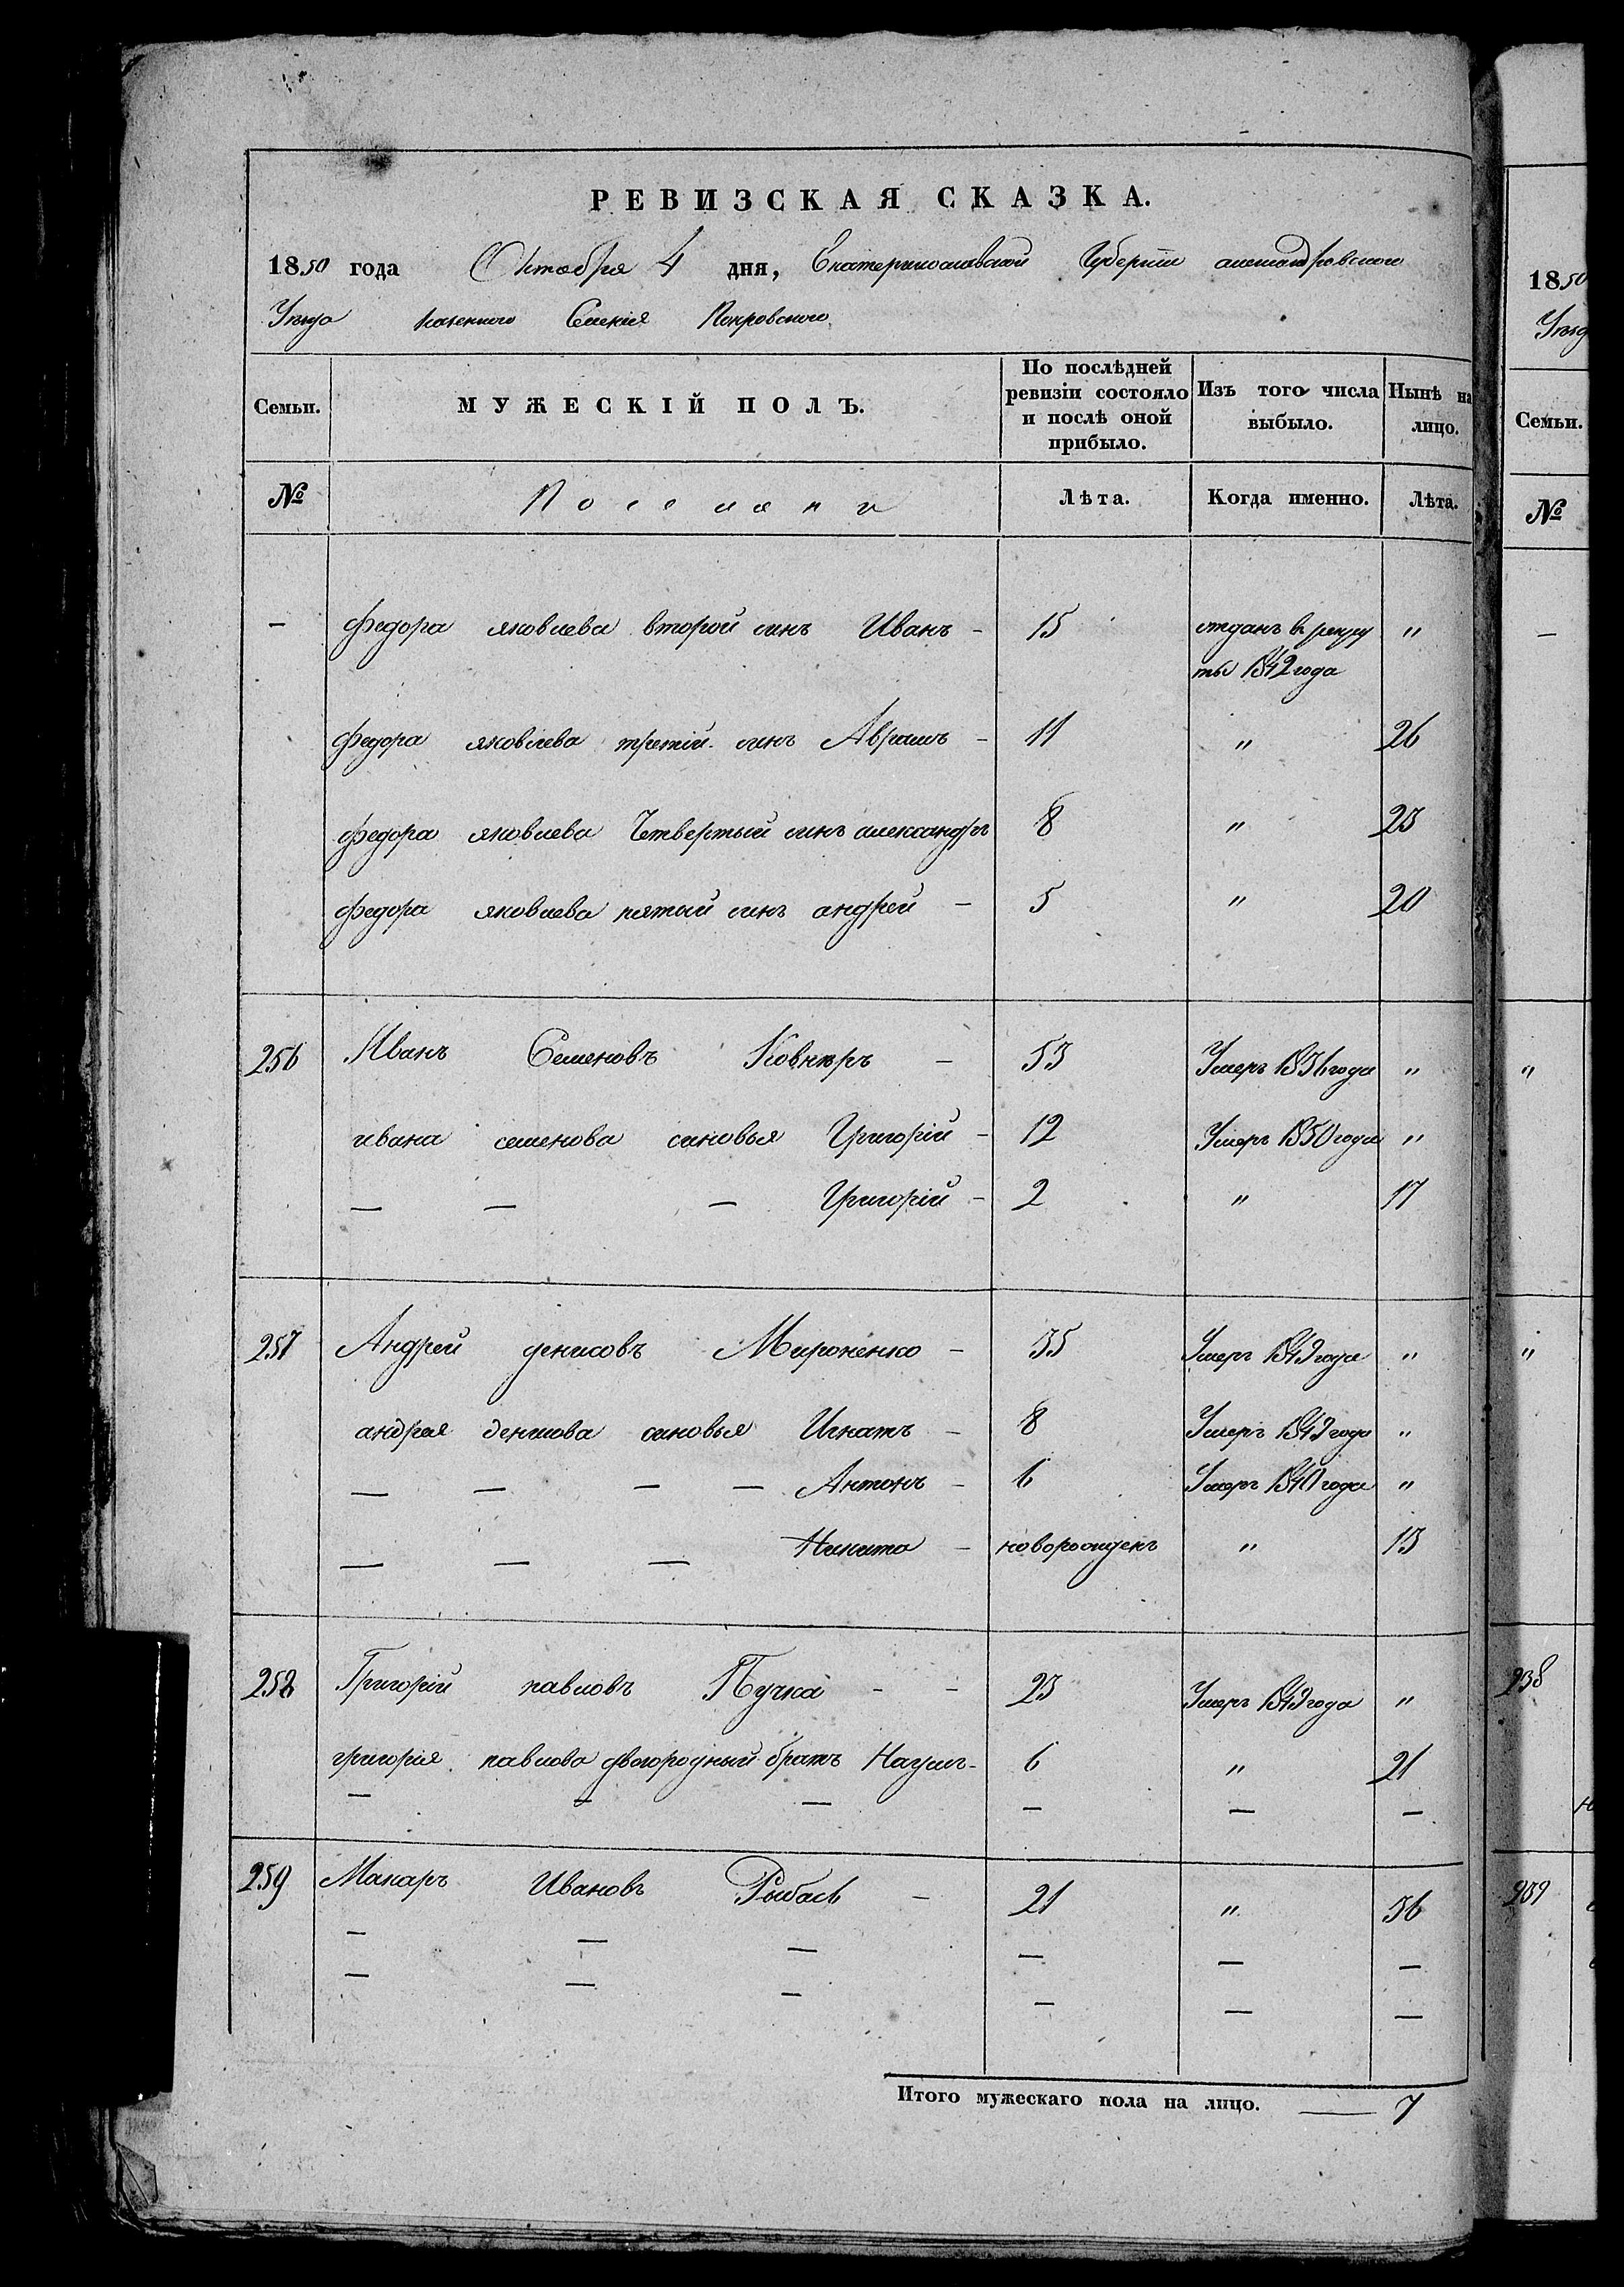 РЕВИЗСКАЯ СКАЗКА.
1850 года Октября 4 дня, Екатеринославской Губерніи александровского
Уезда казенного Селенія Покровского
Семьи. МУЖЕСКІЙ ПОЛЪ. По послѣдней ревизіи состояло и послѣ оной прибыло. Изъ того числа выбыло. Нынѣ на лицо.
№ Поселяни Лѣта. Когда именно. Лѣта.
— федора яковлева второй синъ Иванъ — 15 отданъ в рекру „
ты 1842 года
федора яковлева третій синъ Аврамъ — 11 „ 26
федора яковлева Четвертый синъ александръ 8 „ 23
федора яковлева пятый синъ андрей — 5 „ 20
256 Иванъ Семеновъ Ковнѣръ — 53 Умеръ 1836 года „
ивана семенова синовья Григорій — 12 Умеръ 1850 года „
— — — Григорій — 2 „ 17
257 Андрей денисовъ Мироненко — 35 Умеръ 1849 года „
андрея денисова синовья Игнатъ — 8 Умеръ 1849 года „
— — — — Антонъ — 6 Умеръ 1840 года „
— — — Никита — новорожденъ „ 15
258 Григорій павловъ Пучка — — 23 Умеръ 1849 года „
григорія павлова двогородный братъ Наумъ — 6 „ 21
— — — — — —
259 Макаръ Ивановъ Рыбасъ — 21 „ 36
— — — — — —
— — — — — —
Итого мужескаго пола на лицо. — 7
1850
Уезд
Семьи.
№
—
„
„
258
259